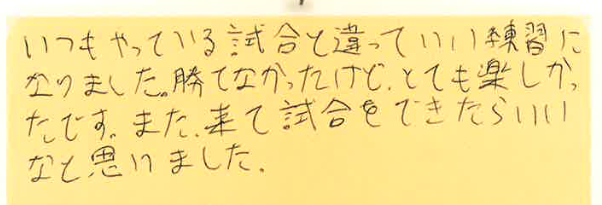 いつもやっている試合と違っていい練習に
なりました。勝てなかったけど、とても楽しかっ
たです。また、来て試合をできたらいい
なと思いました。